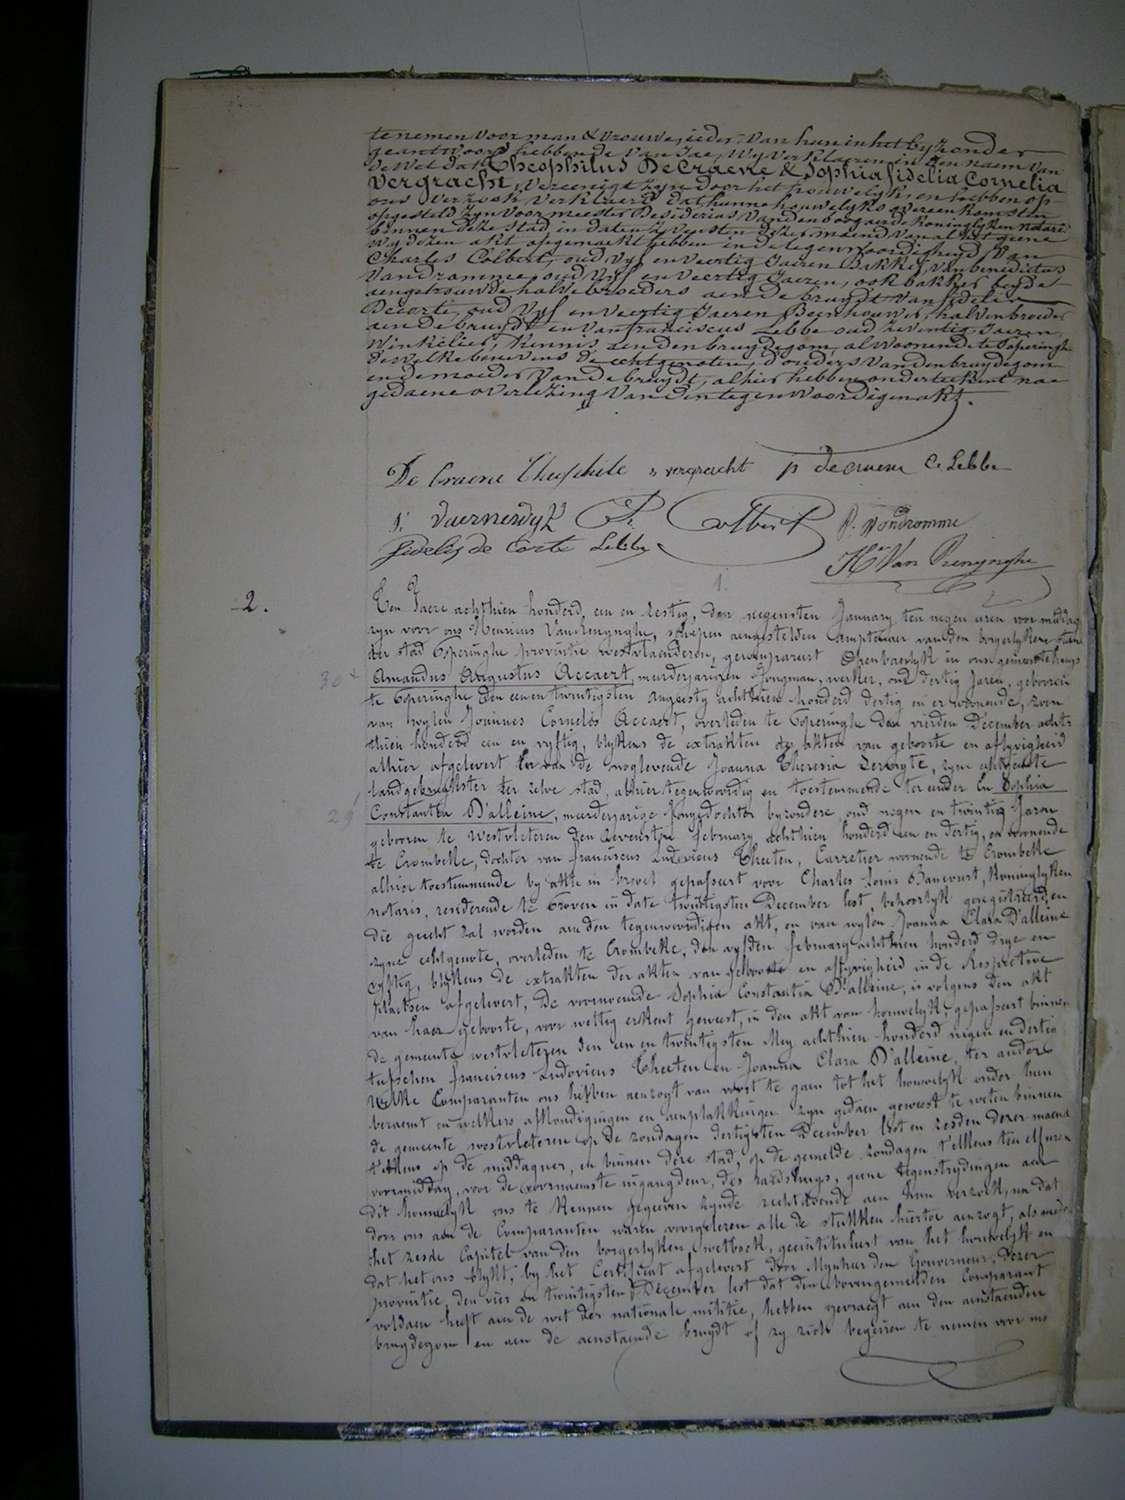 te nemen voor man & vrouwe, ieder van hun in het byzonder
geantwoord hebbende van Jae, Wy verklaeren in den naem van
de Wet dat Theophilus De Craene & Sophia fidelia Cornelia
Vergracht, Vereenigt zyn door het houwelyk, en hebben op
ons verzoek verklaerd dat hunne houwelyks overeenkomsten
opgesteld zyn voor meester Desiderius Vandenboogaerde Koninglyken notaris
binnen deze stad in daten vyfsten dezer maend van al het geene
Wy dezen akt opgemaekt hebben in de tegenwoordigheyd van
Charles Colbert, oud vyf en veertig Jaeren Bakker, van benedictus
Vandromme, oud vyf en veertig Jaeren, ook bakker beyde
aengetrouwde halve broeders aen de bruydt van fidelis
Decorte, oud vyf en veertig Jaeren Beenhouwer, halven broeder
aen de bruydt en van franciscus Lebbe oud zeventig Jaeren,
Winkelier, kennis aen den bruydegom, al woonende te Poperinghe
dewelke benevens de echtgenoten, d'ouders van den bruydegom
en de moeder van de bruydt, alhier hebben onderteekent nae
gedaene overlezing van den tegenwoordigen akt.
De Craene Theophile s vergracht p decraene C Lebbe
Colbert P. Vandromme
fidelis de Corte Lebbe
Hri Van Renynghe
1.
2. Ten Jaere achthien honderd, een en zestig, den negensten January ten negen uren voormiddag
zyn voor ons Henricus Vanrenynghe, schepen aengestelden Amptenaer van den borgerlyken stand
der stad Poperinghe provintie westvlaenderen, gecompareert Openbaerlyk in ons gemeentehuys
30 Amandus Augustus Accaert, meerderjarigen Jongman, werker, oud dertig Jaren, gebooren
te Poperinghe den eenen twintigsten augusty achthien honderd dertig en er woonende, zoon
van wylen Joannes Cornelis Accaert, overleden te Poperinghe den vierden December acht-
thien honderd een en vyftig, blykens de extrakten der akten van geboorte en aflyvigheid
alhier afgelevert en van de noglevende Joanna Theresia , zyne echtgenote
landgebruykster ter zelve stad, alhier tegenwoordig en toestemmende ter eender En Sophia
29 Constantia D'alleine, meerderjarige Jongedochter byzondere, oud negen en twintig Jaren
gebooren te Westvleteren den zevensten february achthien honderd een en dertig, en woonende
te Crombeke, dochter van franciscus Ludovicus Theeten, Carretier woonende te Crombeke
alhier toestemmende by akte in brevet gepasseert voor Charles Louis Bancourt, Koninglyken
notaris, resideerende te Proven in date twintigsten December lest, behoorlyk geregistreerd, en
die gehecht zal worden aen den tegenwoordigen akt, en van wylen Joanna Clara D'alleine
zyne echtgenote, overleden te Crombeke, den vyfden february achthien honderd drye en
vyftig, blykens de extrakten der akten van geboorte en aflyvigheid in de Respective
plaetsen afgelevert, De voornoemde Sophia Constantia D'alleine, is volgens den akt
van haer geboorte, voor wettig erkent geweest, in den akt van houwelyk, gepasseert binnen
de gemeente westvleteren den een en twintigsten Mey achthien honderd negen en dertig
tusschen franciscus Ludovicus Theeten en Joanna Clara D'alleine, ter andere
welke Comparanten ons hebben aenzogt van voort te gaen tot het houwelyk onder hun
beraemt en welkers afkondigingen en aenplakkingen zyn gedaen geweest te weten binnen
de gemeente westvleteren op de zondagen dertigsten December lest en zesden dezer maend
t'elkens op de middaguer, en binnen deze stad, op de gemelde zondagen t'elkens ten elf uren
voormiddag, voor de voornaemste ingangdeur, des stadshuys, geene tegenstrydingen aen
dit houwelyk ons te kennen gegeven zynde rechtdoende aen hun verzoek, na dat
door ons aen de Comparanten waren voorgelezen alle de stukken hiertoe aenzogt, als mede
het zesde Capittel van den borgerlyken wetboek, geintituleert van het houwelyk en
dat het ons blykt, by het Certificat afgelevert door Mynheer den Gouverneur, dezer
provintie, den vier en twintigsten December lest dat den bovengemelden Comparant
voldaen heeft aen de wet der nationale militie, hebben gevraegt aen den aenstaenden
bruydegom en aen de aenstaende bruydt of zy zich begeiren te nemen voor me